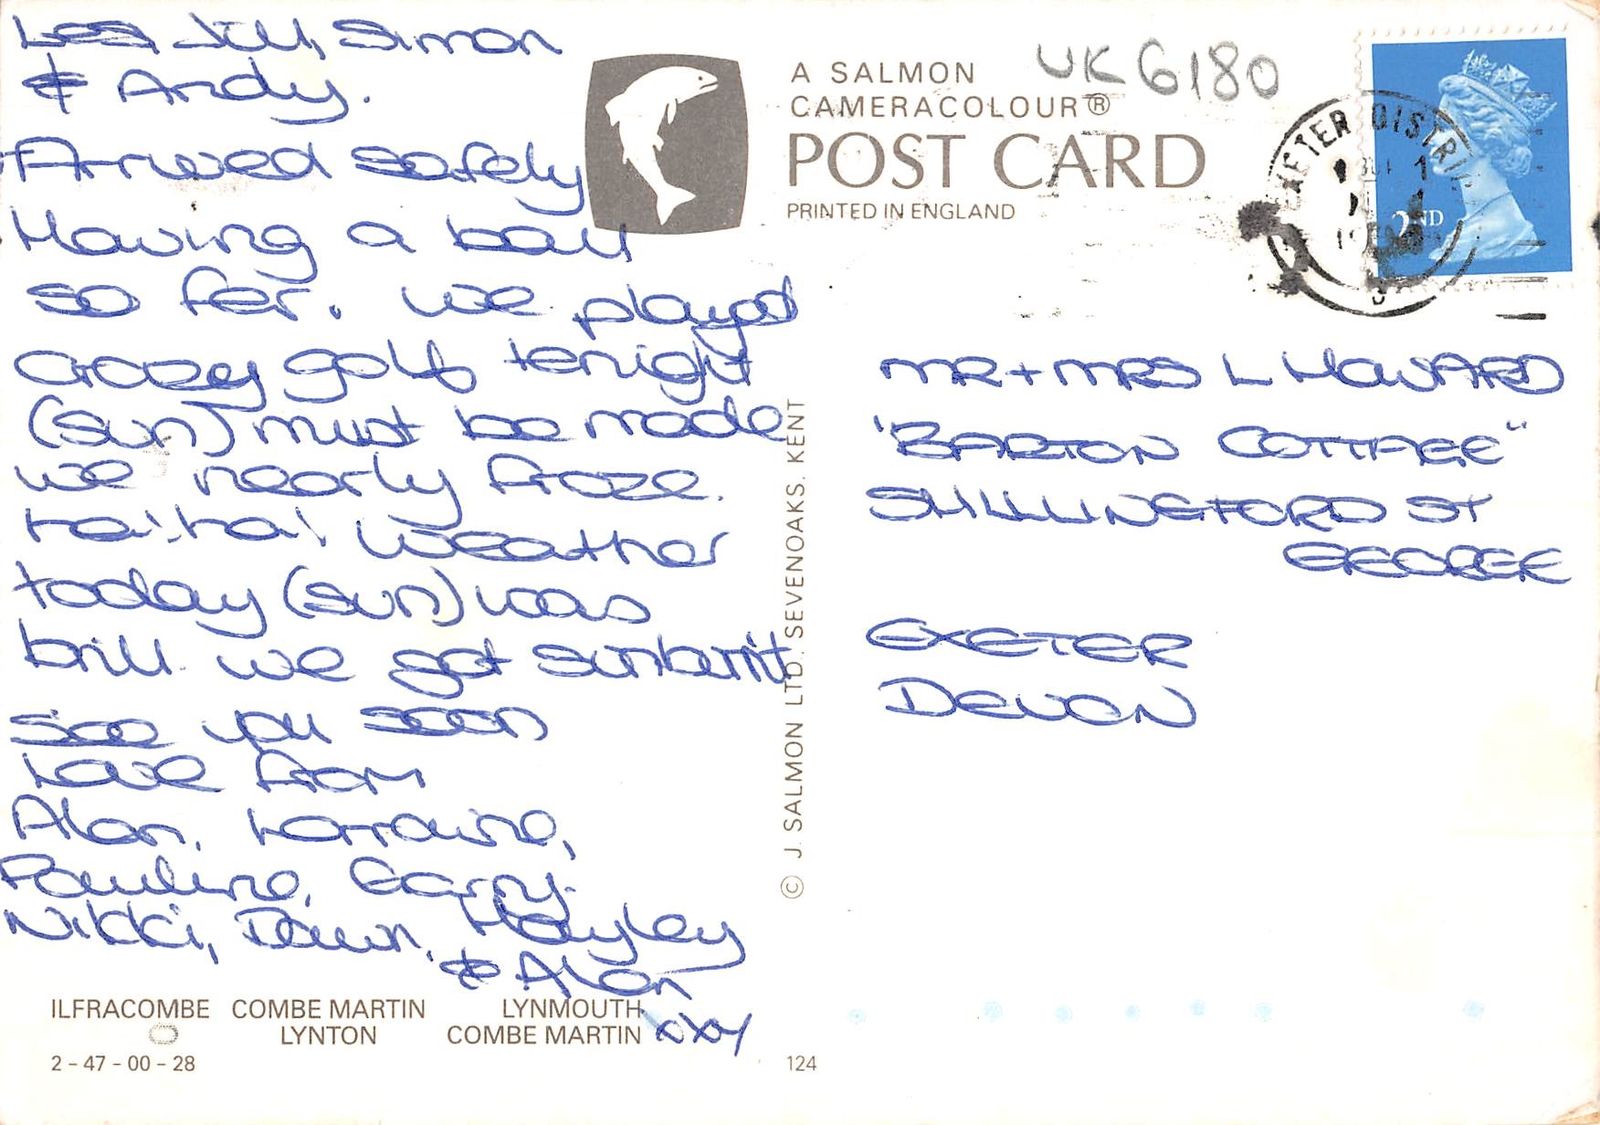 Les, Jill, Simon
& Andy.
Arrived safely
Having a ball
so far. We played
crazy golf tonight
(sun) must be made
we nearly froze.
ha! ha! Weather
today (sun) was
brill we got sunburnt
See you soon
Love from
Alan, Lorraine,
Pauline, Garry.
Nikki, Dawn, Hayley
& Alan
xxx
ILFRACOMBE COMBE MARTIN LYNMOUTH
LYNTON COMBE MARTIN
2 - 47 - 00 - 28
A SALMON
CAMERACOLOUR®
POST CARD
PRINTED IN ENGLAND
UK 6180
EXETER DISTRI
2ND
© J. SALMON LTD., SEVENOAKS, KENT
124
MR + MRS L HOWARD
"BARTON COTTAGE"
SHILLINGFORD ST
GEORGE
EXETER
DEVON